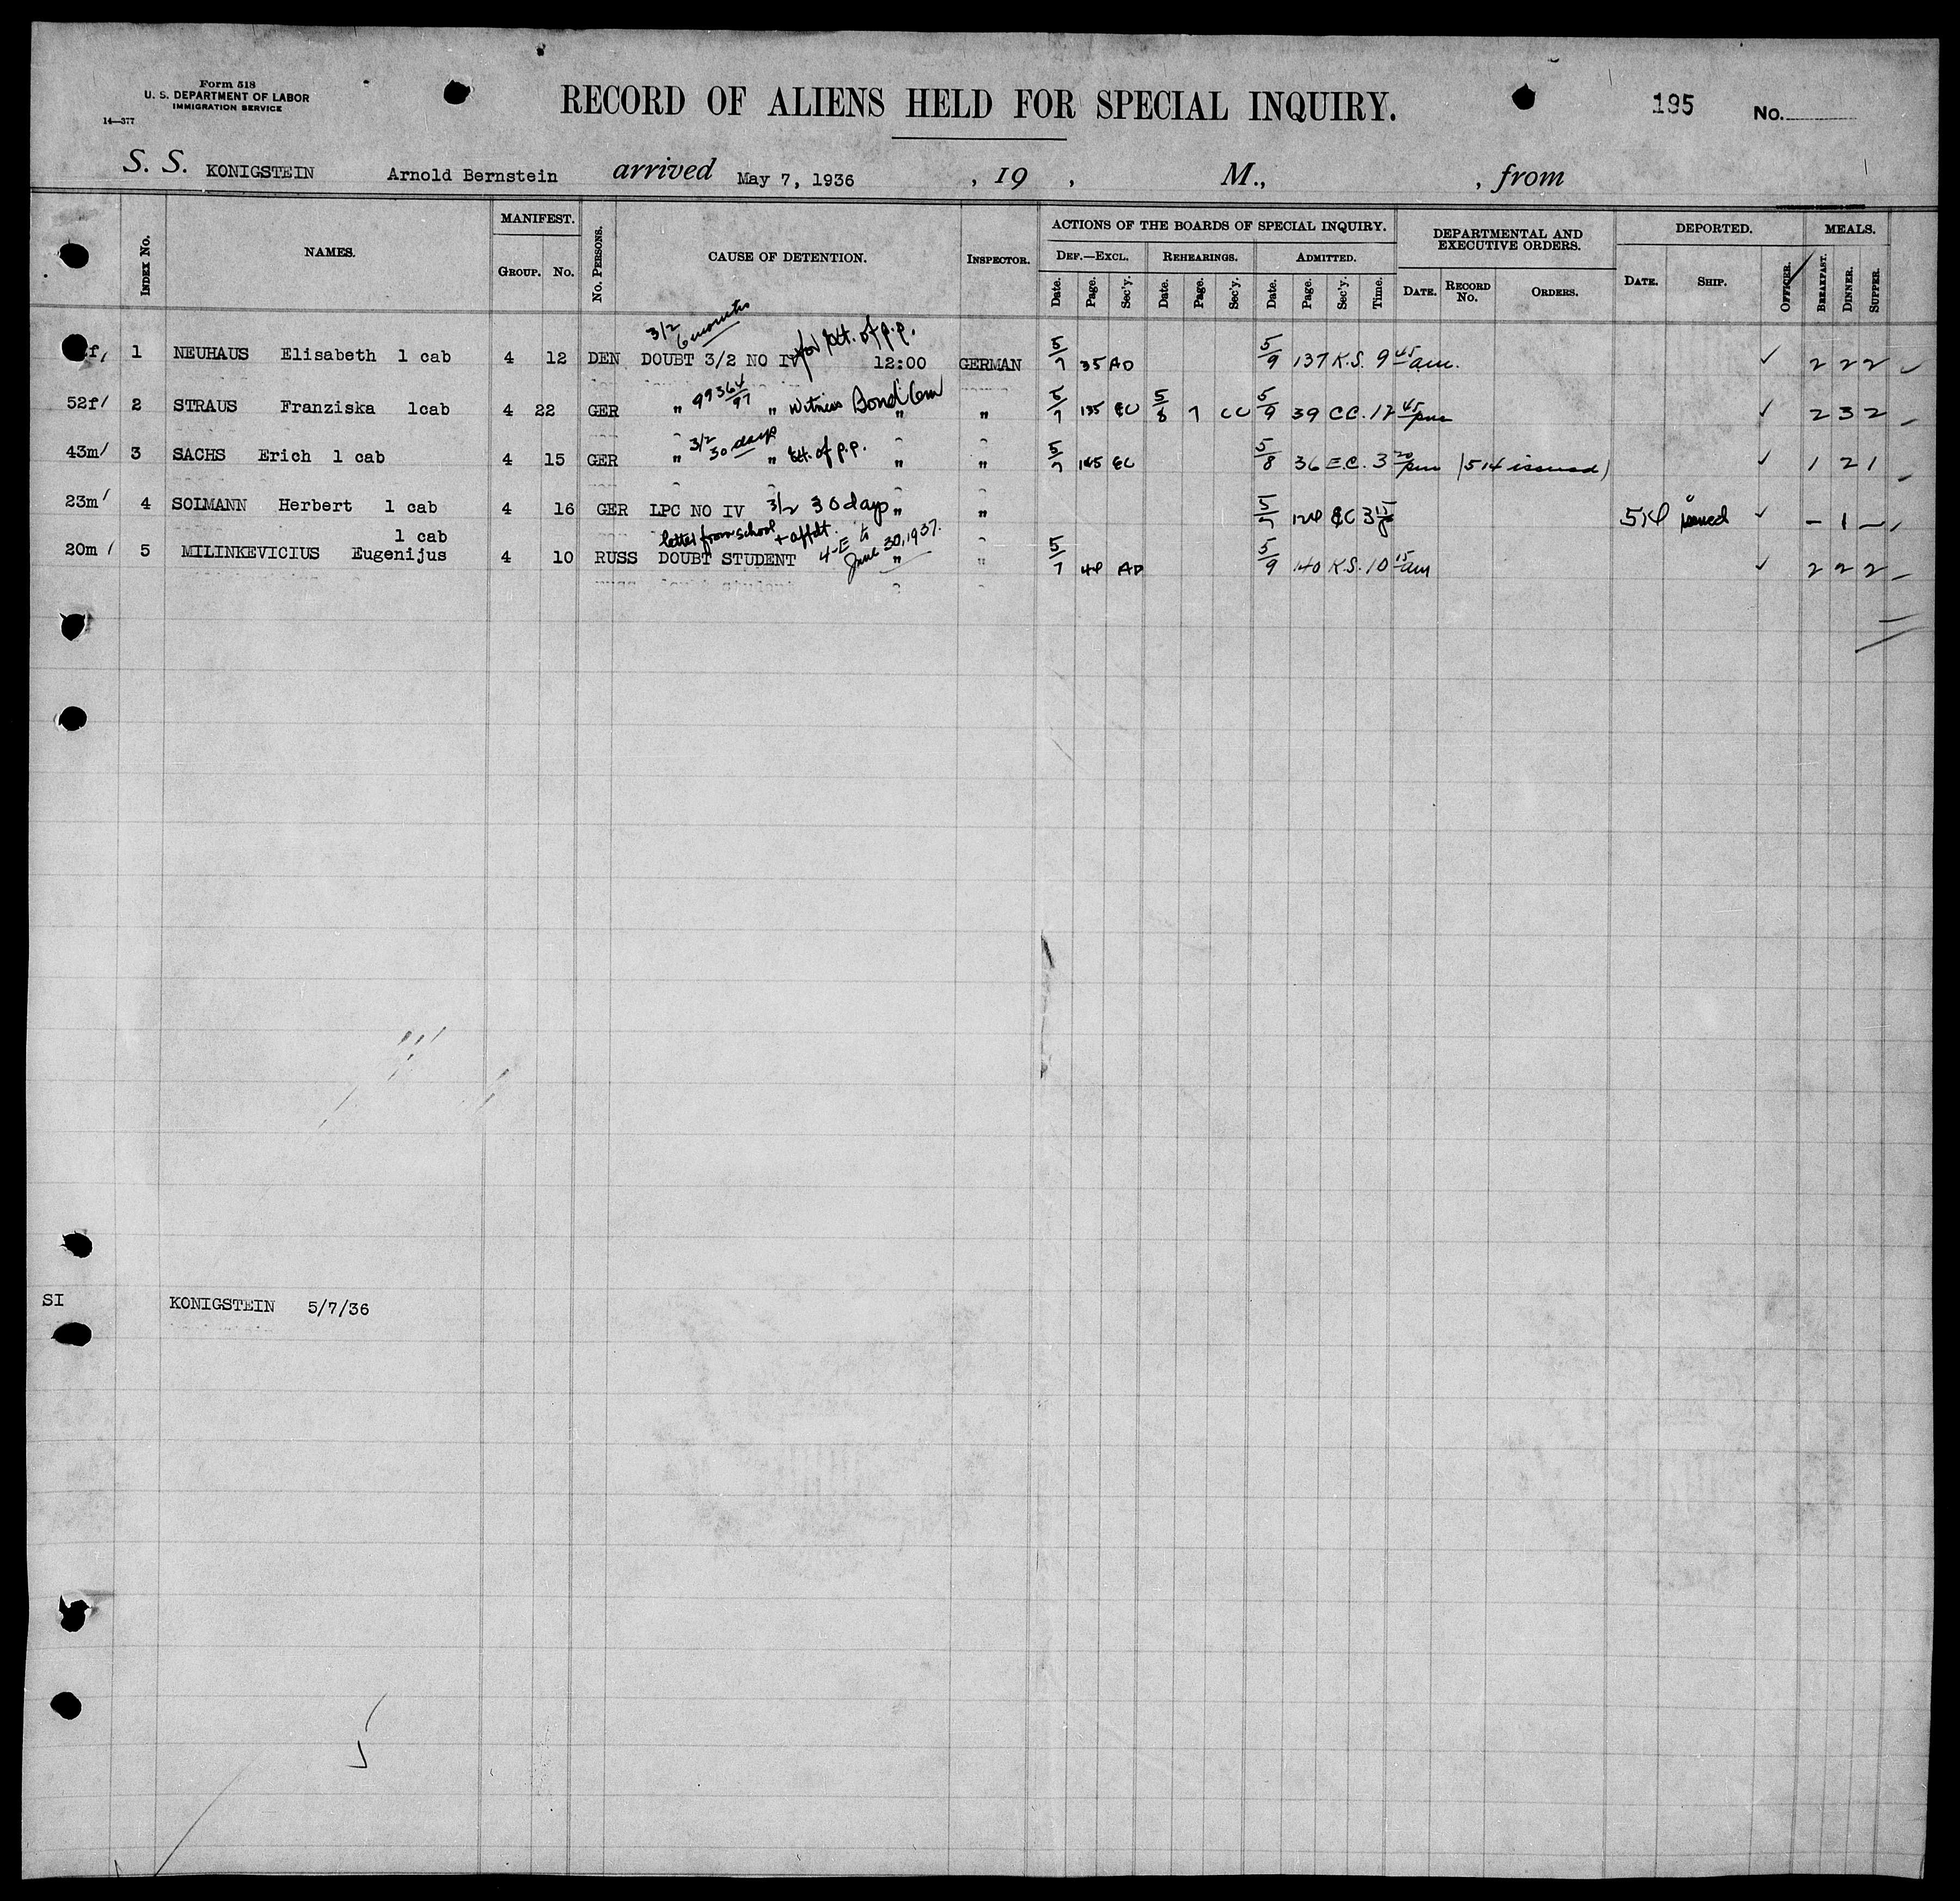 Form 518
U. S. DEPARTMENT OF LABOR
IMMIGRATION SERVICE
14—377
RECORD OF ALIENS HELD FOR SPECIAL INQUIRY.
195 No.
S. S. KONIGSTEIN Arnold Bernstein arrived May 7, 1936 , 19 , M., , from
Index No. NAMES. MANIFEST. Group. No. No. Persons. CAUSE OF DETENTION. Inspector. ACTIONS OF THE BOARDS OF SPECIAL INQUIRY. Def.—Excl. Date. Page. Sec'y. Rehearings. Date. Page. Sec'y. Admitted. Date. Page. Sec'y. Time. DEPARTMENTAL AND EXECUTIVE ORDERS. Date. Record No. Orders. DEPORTED. Date. Ship. Officer. MEALS. Breakfast. Dinner. Supper.
3/2 6 months for of p.p.
f, 1 NEUHAUS Elisabeth 1 cab 4 12 DEN DOUBT 3/2 NO IV 12:00 GERMAN 5/7 35 AD 5/9 137 K.S. 9 45 am. ✓ 2 2 2
99364/97 Witness Bond
52f/ 2 STRAUS Franziska 1cab 4 22 GER " " " " 5/7 135 EC 5/8 7 CC 5/9 39 CC. 12 45 pm ✓ 2 3 2
3/2 30 days of p.p.
43m/ 3 SACHS Erich 1 cab 4 15 GER " " " " 5/7 145 EC 5/8 36 E.C. 3 20 pm (514 issued) ✓ 1 2 1
23m/ 4 SOLMANN Herbert 1 cab 4 16 GER LPC NO IV 3/2 30 days " " 5/7 EC 3 15 issued ✓ — 1 —
1 cab letter from school + affdt. 4-E to June 30, 1937.
20m/ 5 MILINKEVICIUS Eugenijus 4 10 RUSS DOUBT STUDENT " " 5/7 AD 5/9 140 K.S. 10 15 am ✓ 2 2 2
SI KONIGSTEIN 5/7/36